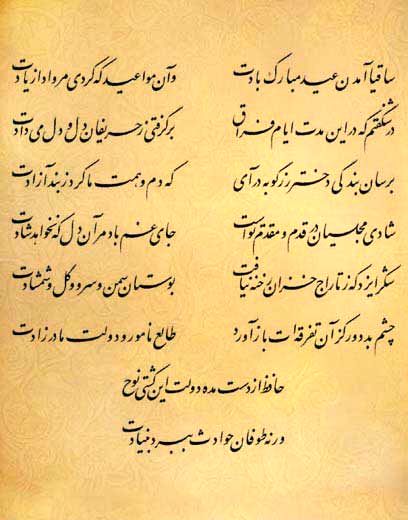 ساقیا آمدن عید مبارک بادت وآن مواعید که کردی مرواد از یادت
در شگفتم که در این مدت ایام فراق برگرفتی ز حریفان دل و دل می دادت
برسان بندگی دختر رز گو به درآی که دم و همت ما کرد ز بند آزادت
شادی مجلسیان در قدم و مقدم توست جای غم باد مر آن دل که نخواهد شادت
شکر ایزد که ز تاراج خزان رخنه نیافت بوستان سمن و سرو و گل و شمشادت
چشم بد دور کز آن تفرقه ات بازآورد طالع نامور و دولت مادرزادت
حافظ از دست مده دولت این کشتی نوح
ور نه طوفان حوادث ببرد بنیادت